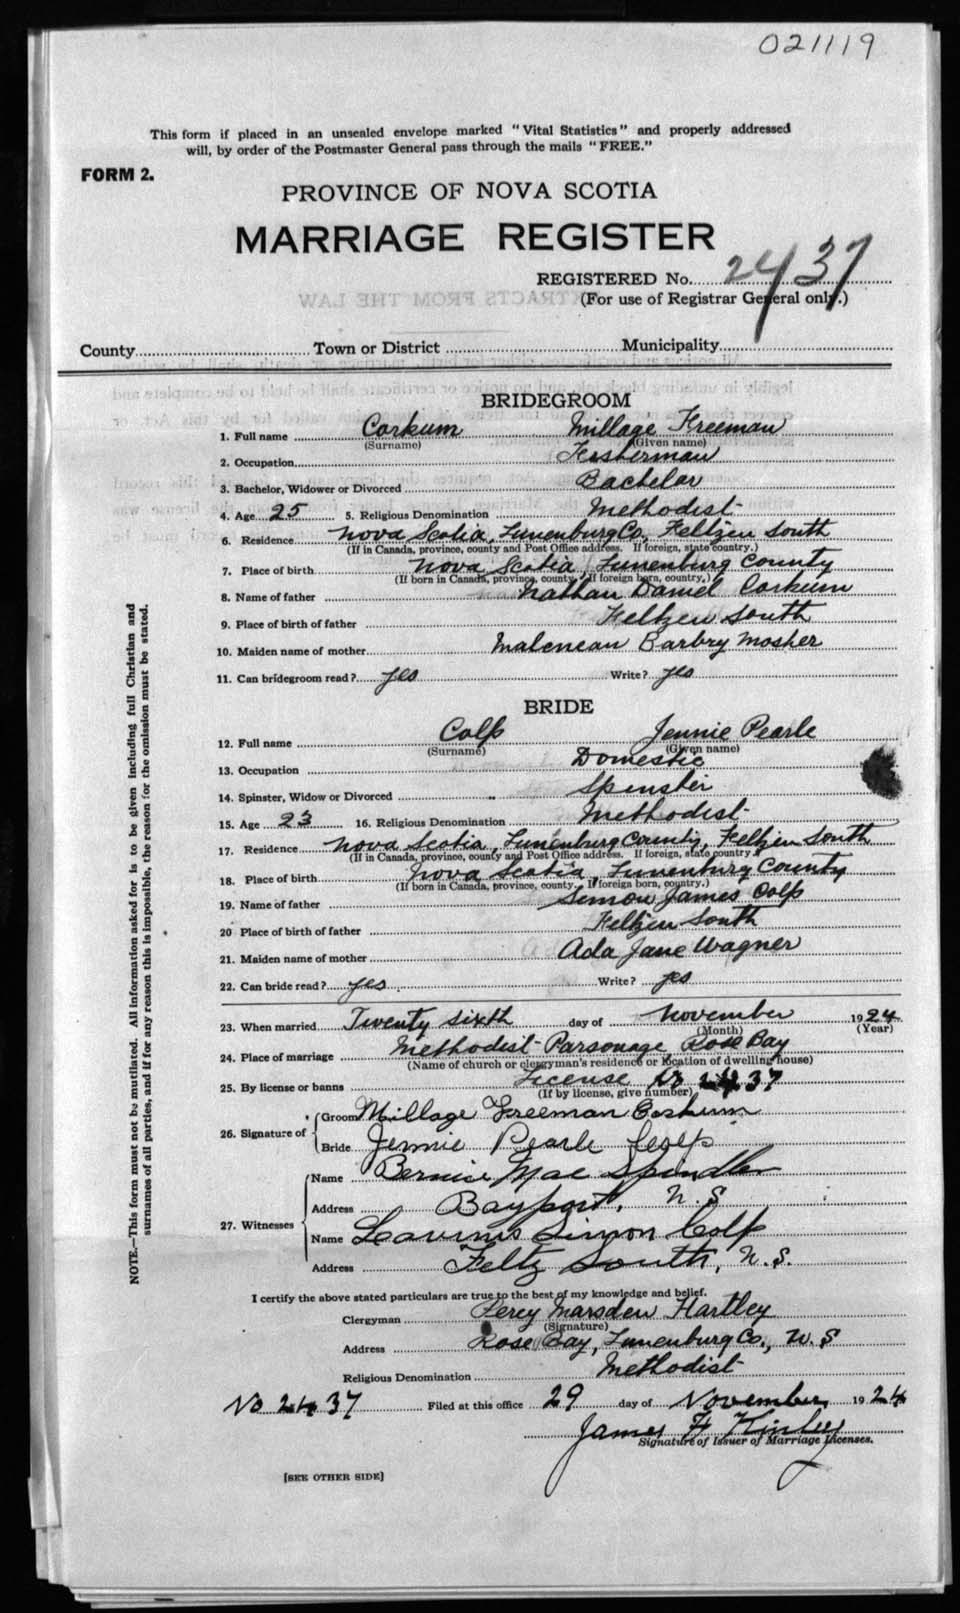 021119
This form if placed in an unsealed envelope marked "Vital Statistics" and properly addressed
will, by order of the Postmaster General pass through the mails "FREE."
FORM 2.
PROVINCE OF NOVA SCOTIA
MARRIAGE REGISTER
REGISTERED No. 2437
(For use of Registrar General only.)
County Town or District Municipality
BRIDEGROOM
1. Full name Corkum Millage Freeman
(Surname) (Given name)
2. Occupation Fisherman
3. Bachelor, Widower or Divorced Bachelor
4. Age 25 5. Religious Denomination Methodist
6. Residence Nova Scotia, Lunenburg Co, Feltzen South
(If in Canada, province, county and Post Office address. If foreign, state country.)
7. Place of birth Nova Scotia, Lunenburg County
(If born in Canada, province, county. If foreign born, country.)
8. Name of father Nathan Daniel Corkum
9. Place of birth of father Feltzen South
10. Maiden name of mother Malenean Barbry Mosher
11. Can bridegroom read? yes Write? yes
BRIDE
12. Full name Colp Jennie Pearle
(Surname) (Given name)
13. Occupation Domestic
14. Spinster, Widow or Divorced Spinster
15. Age 23 16. Religious Denomination Methodist
17. Residence Nova Scotia, Lunenburg County, Feltzen South
(If in Canada, province, county and Post Office address. If foreign, state country.)
18. Place of birth Nova Scotia, Lunenburg County
(If born in Canada, province, county. If foreign born, country.)
19. Name of father Simon James Colp
20 Place of birth of father Feltzen South
21. Maiden name of mother Ada Jane Wagner
22. Can bride read? yes Write? yes
23. When married Twenty sixth day of November 1924
(Month) (Year)
24. Place of marriage Methodist Parsonage, Rose Bay
(Name of church or clergyman's residence or location of dwelling house)
25. By license or banns License No 2437
(If by license, give number)
26. Signature of Groom Millage Freeman Corkum
Bride Jennie Pearle Colp
27. Witnesses Name Bernice Mae Spindler
Address Bayport, N.S
Name Lavinus Simon Colp
Address Feltz South, N.S.
I certify the above stated particulars are true to the best of my knowledge and belief.
Clergyman Percy Marsden Hartley
(Signature)
Address Rose Bay, Lunenburg Co., N.S
Religious Denomination Methodist
No 2437 Filed at this office 29 day of November 1924
James F Kinley
Signature of Issuer of Marriage Licenses.
[SEE OTHER SIDE]
NOTE.—This form must not be mutilated. All information asked for is to be given including full Christian and
surnames of all parties, and if for any reason this is impossible, the reason for the omission must be stated.